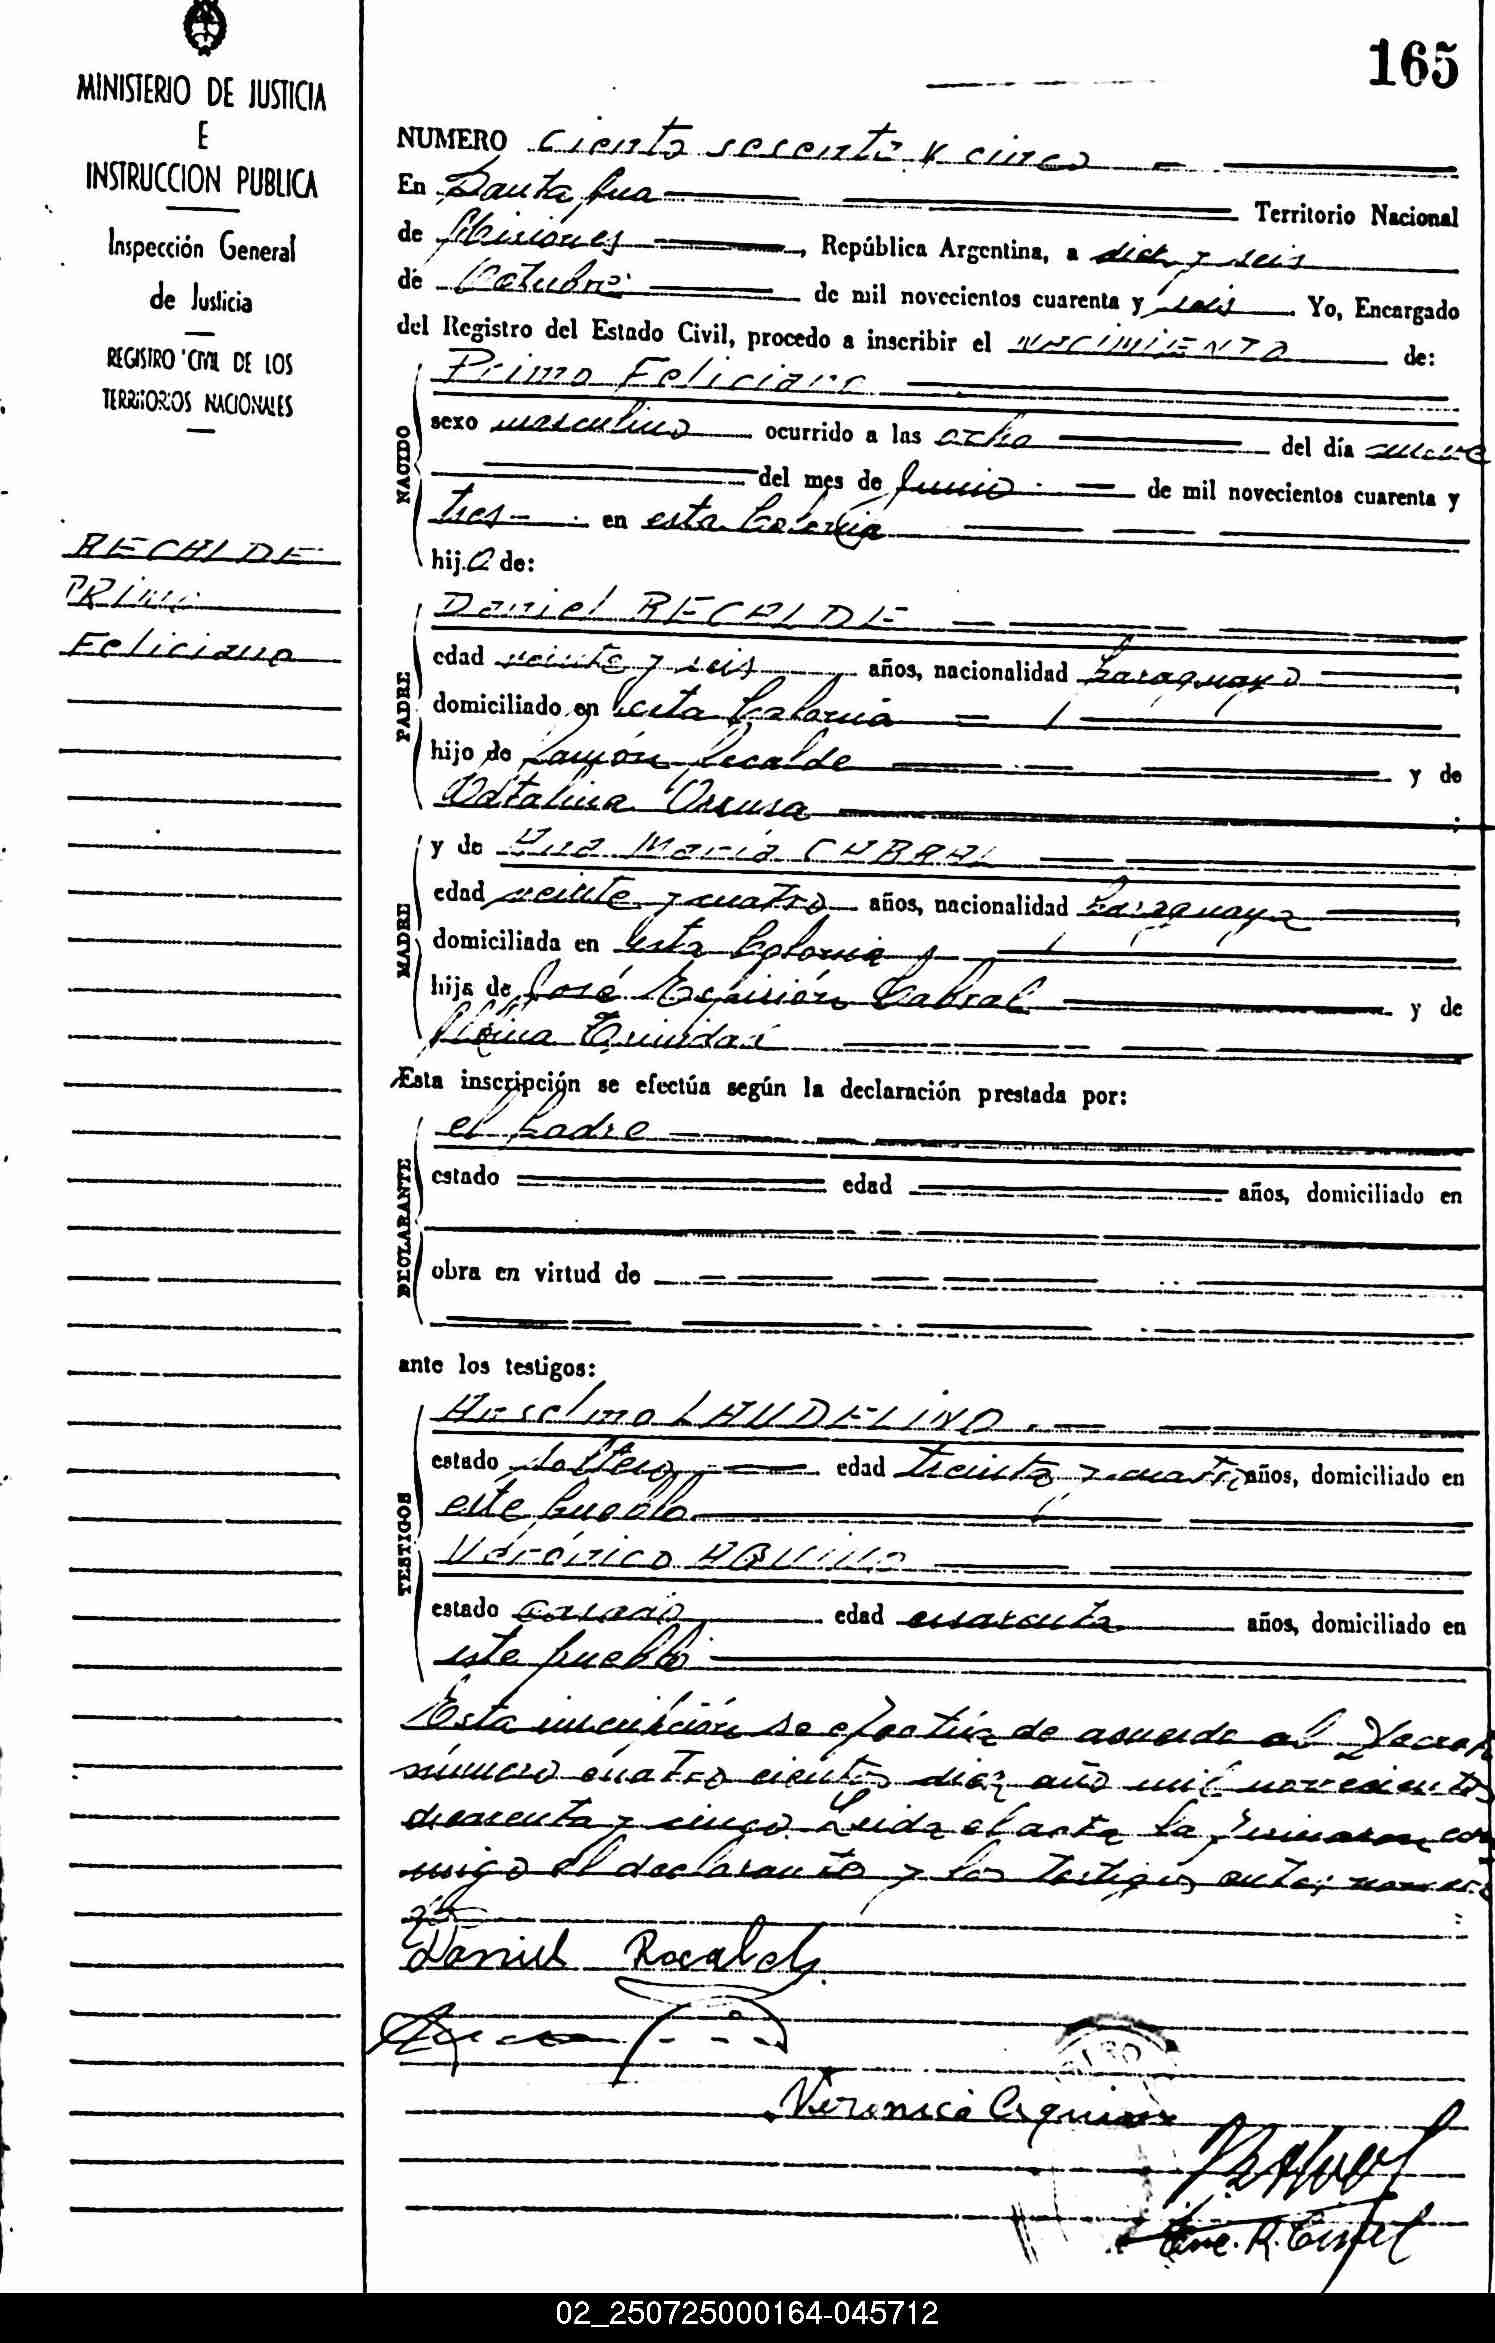 165
MINISTERIO DE JUSTICIA
E
INSTRUCCION PUBLICA
Inspección General
de Justicia
REGISTRO CIVIL DE LOS
TERRITORIOS NACIONALES
RECALDE
PRimo
Feliciano
NUMERO ciento sesenta y cinco
En Santa Ana Territorio Nacional
de Misiones, República Argentina, a diez y seis
de Octubre de mil novecientos cuarenta y seis. Yo, Encargado
del Registro del Estado Civil, procedo a inscribir el NACIMIENTO de:
NACIDO
Primo Feliciano
sexo masculino ocurrido a las ocho del día nueve
del mes de Junio de mil novecientos cuarenta y
tres en esta Colonia
hijo de:
PADRE
Daniel RECALDE
edad veinte y seis años, nacionalidad Paraguayo
domiciliado en esta Colonia
hijo de Ramón Recalde y de
MADRE
y de Ana María CABRAL
edad veinte y cuatro años, nacionalidad Paraguaya
domiciliada en esta Colonia
hija de José Cabral y de
Esta inscripción se efectúa según la declaración prestada por:
DECLARANTE
el padre
estado edad años, domiciliado en
obra en virtud de
ante los testigos:
TESTIGOS
Anselmo LAUDELINO
estado soltero edad treinta y cuatro años, domiciliado en
este pueblo
Verónico AQUINO
estado casado edad cuarenta años, domiciliado en
este pueblo
Esta inscripción se efectúa de acuerdo al Decreto
número cuatro cientos diez año mil novecientos
cuarenta y cinco. Leida el acta la firmaron con
migo el declarante y los testigos antes nombra
dos
Daniel Recalde
Veronico Aquino
02_250725000164-045712